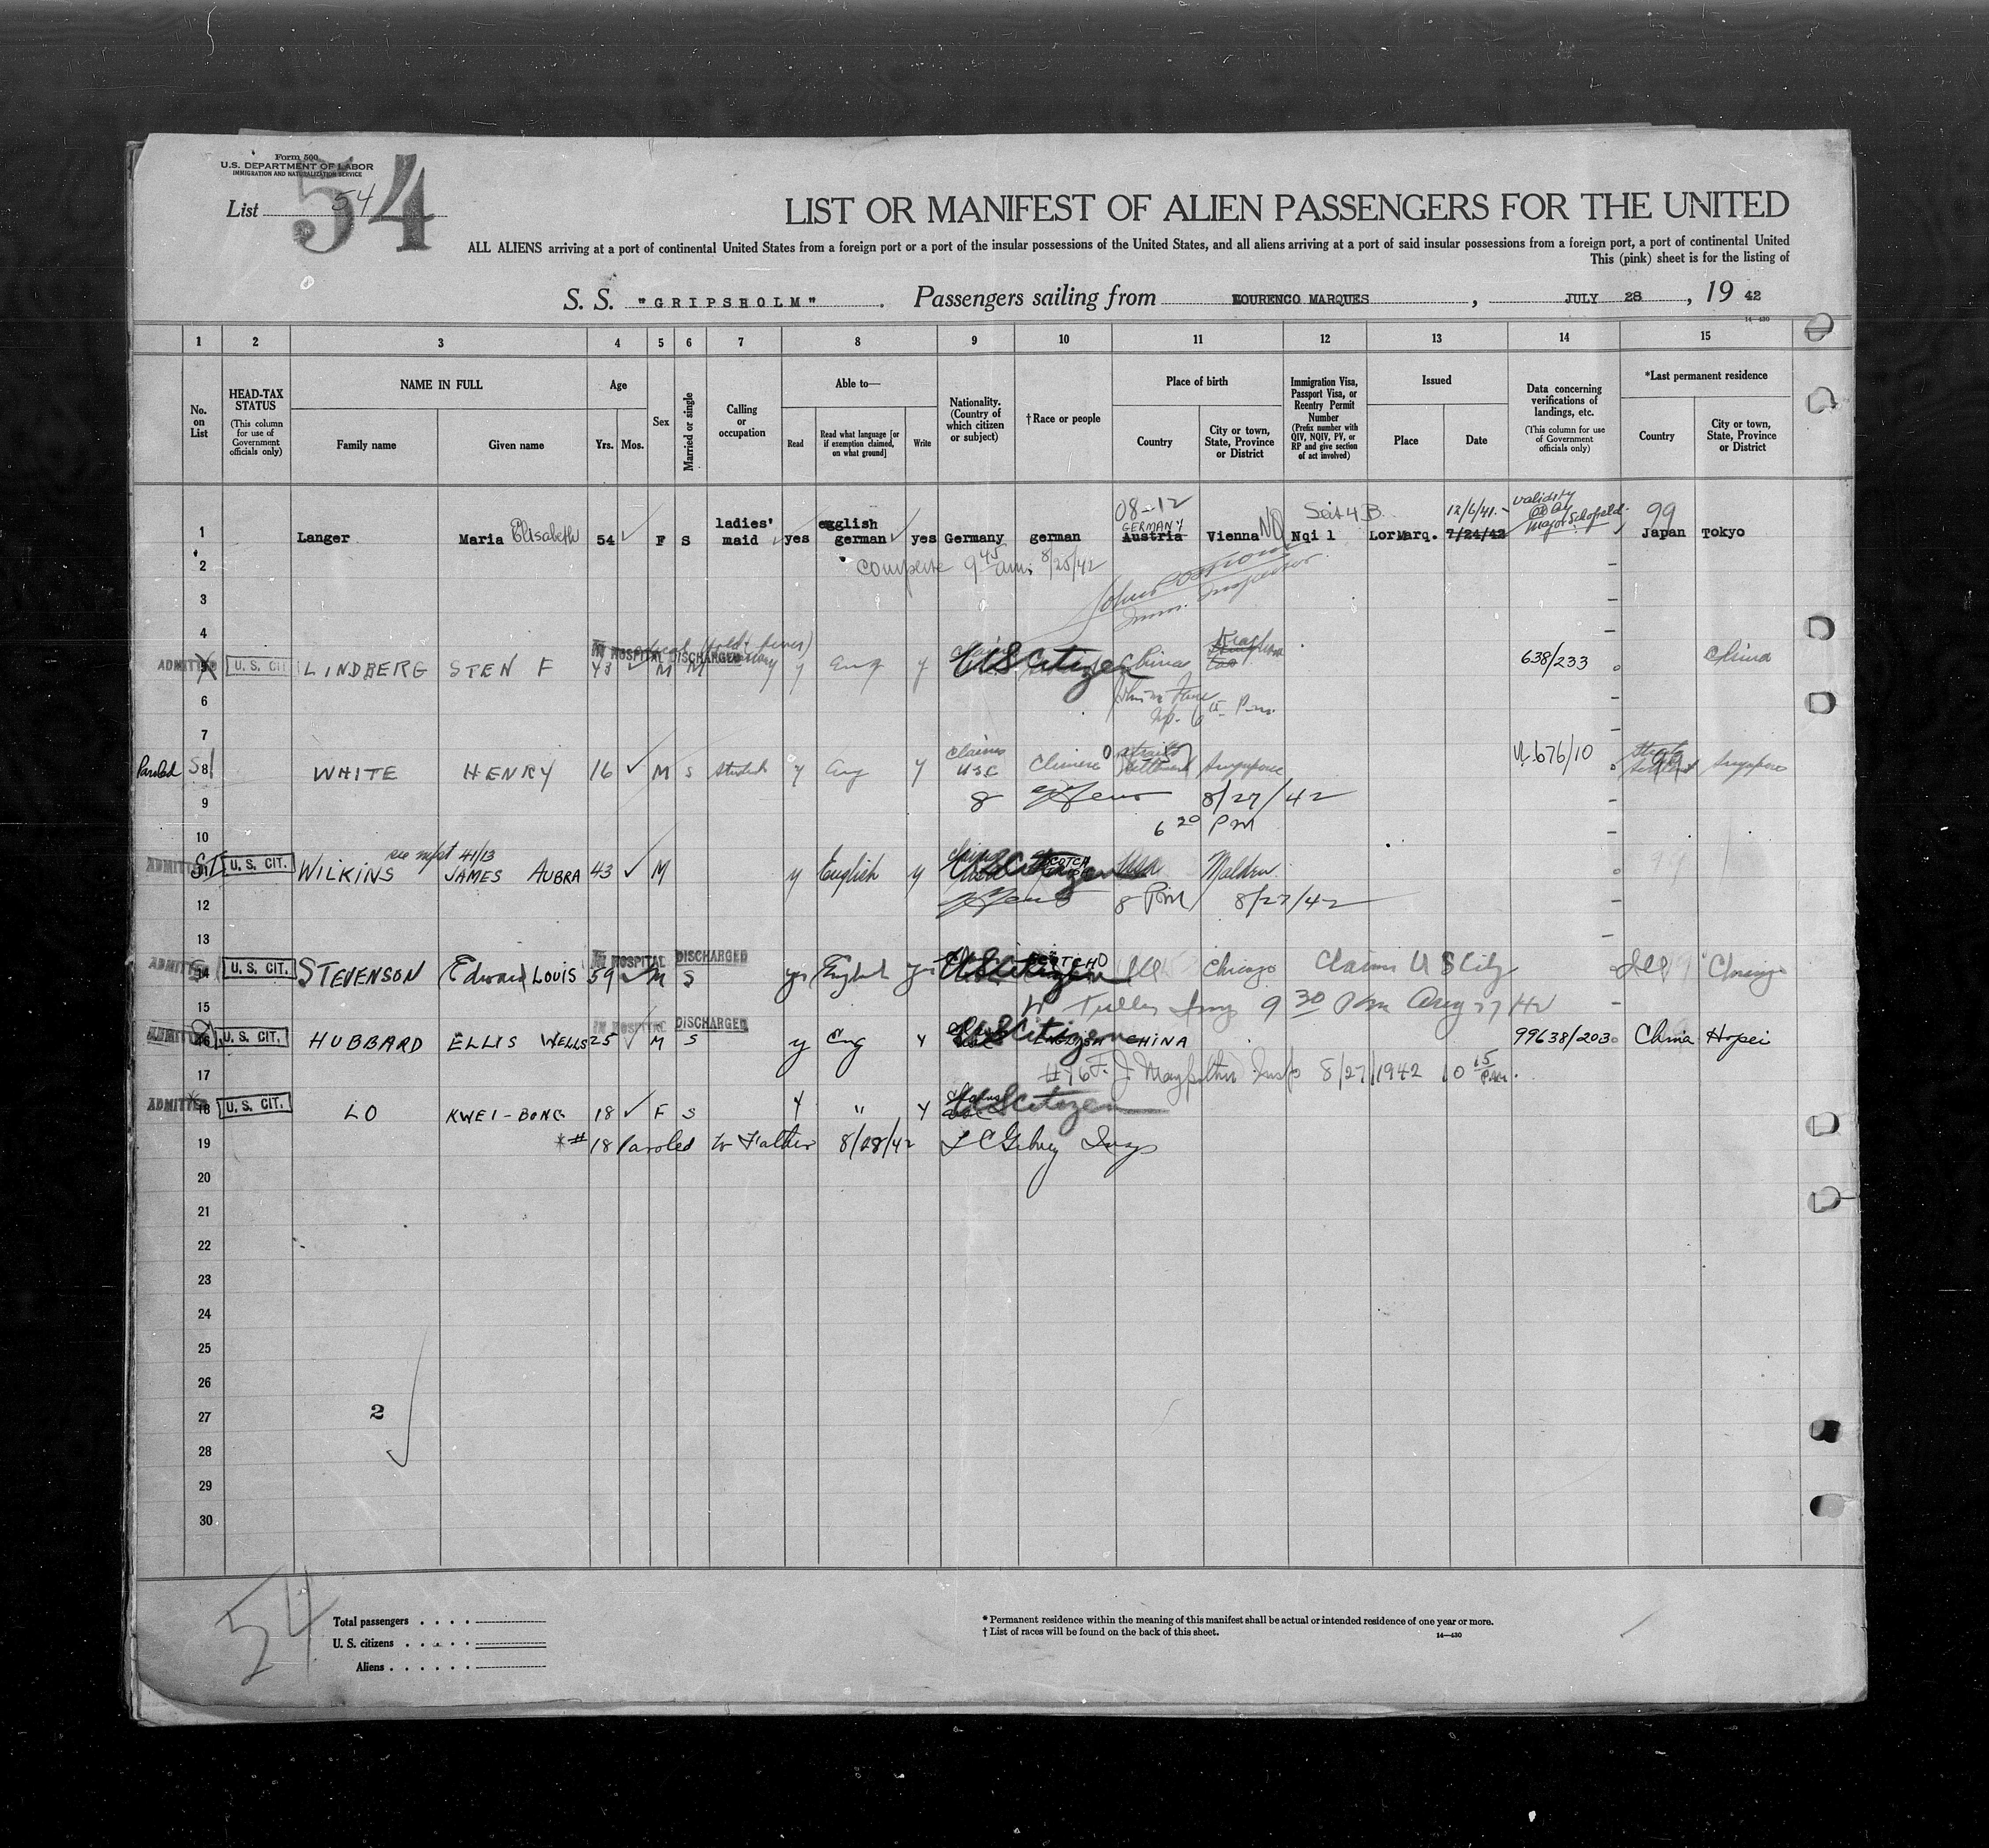 Form 500
U.S. DEPARTMENT OF LABOR
IMMIGRATION AND NATURALIZATION SERVICE
List 54
54
LIST OR MANIFEST OF ALIEN PASSENGERS FOR THE UNITED
ALL ALIENS arriving at a port of continental United States from a foreign port or a port of the insular possessions of the United States, and all aliens arriving at a port of said insular possessions from a foreign port, a port of continental United
This (pink) sheet is for the listing of
S. S. "GRIPSHOLM". Passengers sailing from LOURENCO MARQUES, JULY 28, 19 42
14-430
1 2 3 4 5 6 7 8 9 10 11 12 13 14 15
No. on List
HEAD-TAX STATUS (This column for use of Government officials only)
NAME IN FULL
Family name
Given name
Age
Yrs.
Mos.
Sex
Married or single
Calling or occupation
Able to—
Read
Read what language [or if exemption claimed, on what ground]
Write
Nationality. (Country of which citizen or subject)
†Race or people
Place of birth
Country
City or town, State, Province or District
Immigration Visa, Passport Visa, or Reentry Permit Number (Prefix number with QIV, NQIV, PV, or RP and give section of act involved)
Issued
Place
Date
Data concerning verifications of landings, etc. (This column for use of Government officials only)
*Last permanent residence
Country
City or town, State, Province or District
08-12 Sect 4 B 12/6/41 validity Major Schofield 99
1 Langer Maria Elisabeth 54 F S ladies' maid yes english german yes Germany german GERMANY Austria Vienna NO Nqi 1 LorMarq. 7/24/42 Japan Tokyo
2 complete 9 45 am. 8/25/42
3 Imm. Inspector
4
IN HOSPITAL DISCHARGED
ADMITTED 5 U. S. CIT. LINDBERG STEN F 43 M M y Eng y US Citizen China 638/233 China
6
7
Paroled 8 WHITE HENRY 16 M S student y Eng y Claims USC Chinese Straits Settlement Singapore 676/10 Singapore
9 8 8/27/42
10 6 20 PM
see mfst 41/13
ADMITTED 11 U. S. CIT. WILKINS JAMES AUBRA 43 M y English y US Citizen SCOTCH Malden
12 8 PM 8/27/42
13
IN HOSPITAL DISCHARGED
ADMITTED 14 U. S. CIT. STEVENSON Edward LOUIS 59 M S yes English yes US Citizen SCOTCH Ill Chicago Claims U S City Ill Chicago
15 9 30 Pm Aug 27 42
IN HOSPITAL DISCHARGED
ADMITTED 16 U. S. CIT. HUBBARD ELLIS WELLS 25 M S y Eng y US Citizen ENGLISH CHINA 99638/203 China Hopei
17 #16 F. J. Insp 8/27/1942 10 15 P.M.
ADMITTED 18 U. S. CIT. LO KWEI-BONG 18 F S Y " Y US Citizen
19 *# 18 Paroled to Father 8/28/42 Insp
20
21
22
23
24
25
26
27 2
28
29
30
54
Total passengers
U. S. citizens
Aliens
* Permanent residence within the meaning of this manifest shall be actual or intended residence of one year or more.
† List of races will be found on the back of this sheet. 14-430